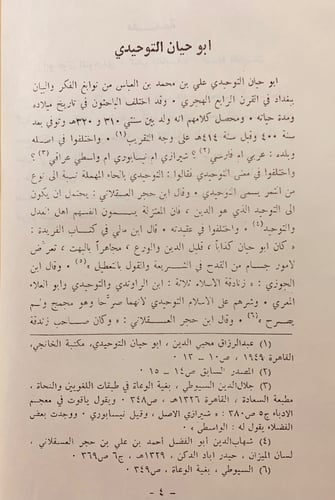 ابو حيان التوحيدي
ابو حيان التوحيدي علي بن محمد بن العباس من نوابغ الفكر والبيان
ببغداد في القرن الرابع الهجري • وقد اختلف الباحثون في تاريخ ميلاده
ومدة حياته • ومحصل كلامهم انه ولد بين سنتي ٣١٠ و ٣٢٠هـ وتوفي بعد
سنة ٤٠٠ وقبل سنة ٤١٤هـ على وجه التقريب(١) • واختلفوا في اصله
وبلده : عربي ام فارسي(٢) ؟ شيرازي ام نيسابوري ام واسطي عراقي(٣) ؟
واختلفوا في معنى التوحيدي فقالوا : التوحيدي بالحاء المهملة نسبة الى نوع
من التمر يسمى التوحيدي • وقال ابن حجر العسقلاني : يحتمل ان يكون
الى التوحيد الذي هو الدين ، فان المعتزلة يسمون انفسهم اهل العدل
والتوحيد(٤) • واختلفوا في عقيدته • قال ابن مالي في كتاب الفريدة :
« كان ابو حيان كذاباً ، قليل الدين والورع ، مجاهراً بالبهت ، تعرض
لامور جسام من القدح في الشريعة والقول بالتعطيل »(٥) • وقال ابن
الجوزي : « زنادقة الاسلام ثلاثة : ابن الراوندي والتوحيدي وابو العلاء
المعري • وشرهم على الاسلام التوحيدي لانهما صرحا وهو مجمج ولم
يصرح »(٦) • وقال ابن حجر العسقلاني : « وكان صاحب زندقة
(١) عبدالرزاق محيي الدين ، ابو حيان التوحيدي، مكتبة الخانجي،
القاهرة ١٩٤٩ ، ص١٠ – ١٣ •
(٢) المصدر السابق ص١٤ – ١٥ •
(٣) جلال‌الدين السيوطي ، بغية الوعاة في طبقات اللغويين والنحاة ،
مطبعة السعادة ، القاهرة ١٣٢٦هـ ، ص٣٤٨ • ويقول ياقوت في معجم
الادباء ج٥ ص٣٨٠ : « شيرازي الاصل ، وقيل نيسابوري • ووجدت بعض
الفضلاء يقول له : الواسطي » •
(٤) شهاب‌الدين أبو الفضل أحمد بن علي بن حجر العسقلاني ،
لسان الميزان ، حيدر آباد الدكن ، ١٣٢٩هـ ، ج٦ ص٣٦٩ •
(٦) السيوطي ، بغية الوعاة ، ص٣٤٩ •
– ٤ –